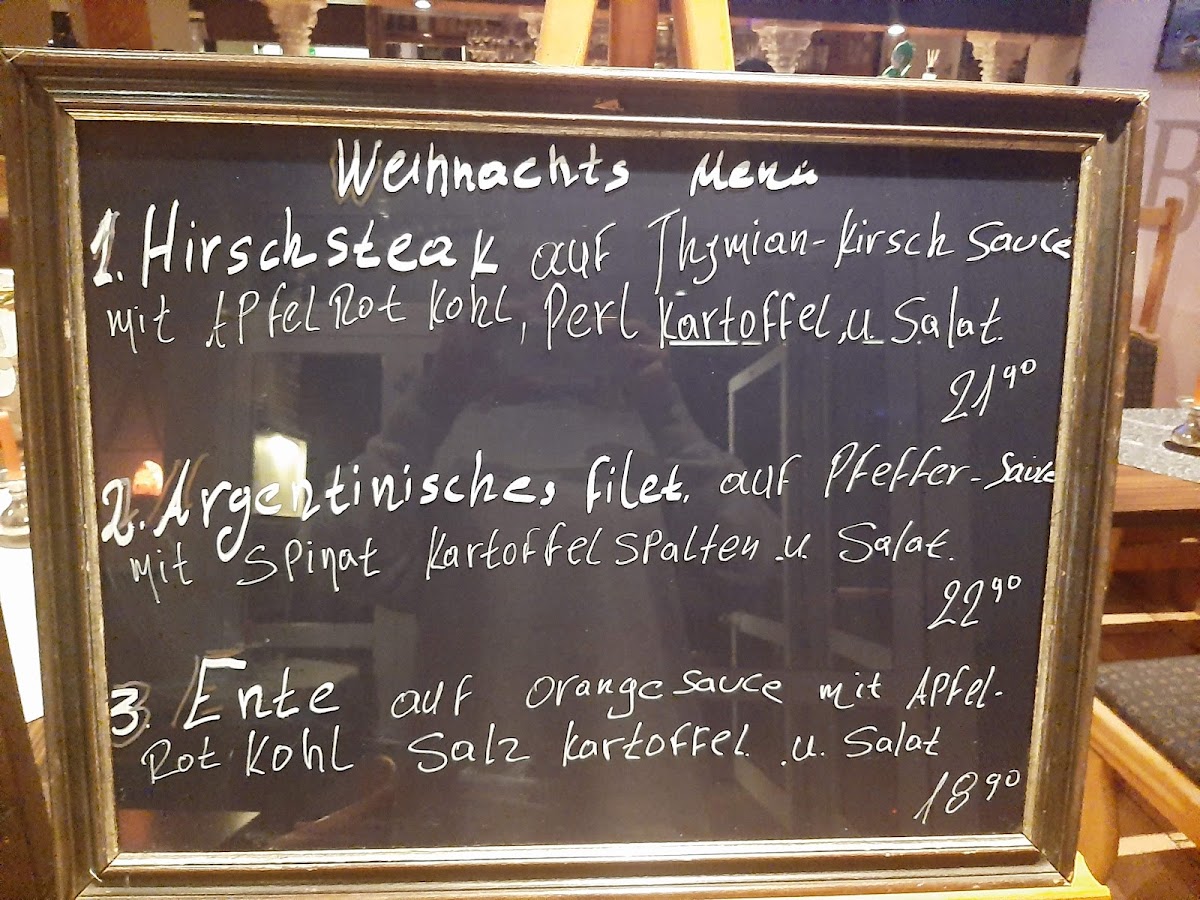 Weihnachts Menü
1. Hirschsteak auf Thymian-Kirsch Sauce
mit Apfel Rot Kohl, Perl Kartoffel u. Salat.
21 90
2. Argentinisches filet. auf Pfeffer-Sauce
mit Spinat Kartoffel spalten u. Salat.
22 90
3. Ente auf orange sauce mit Apfel-
Rot Kohl Salz kartoffel u. Salat
18 90
B